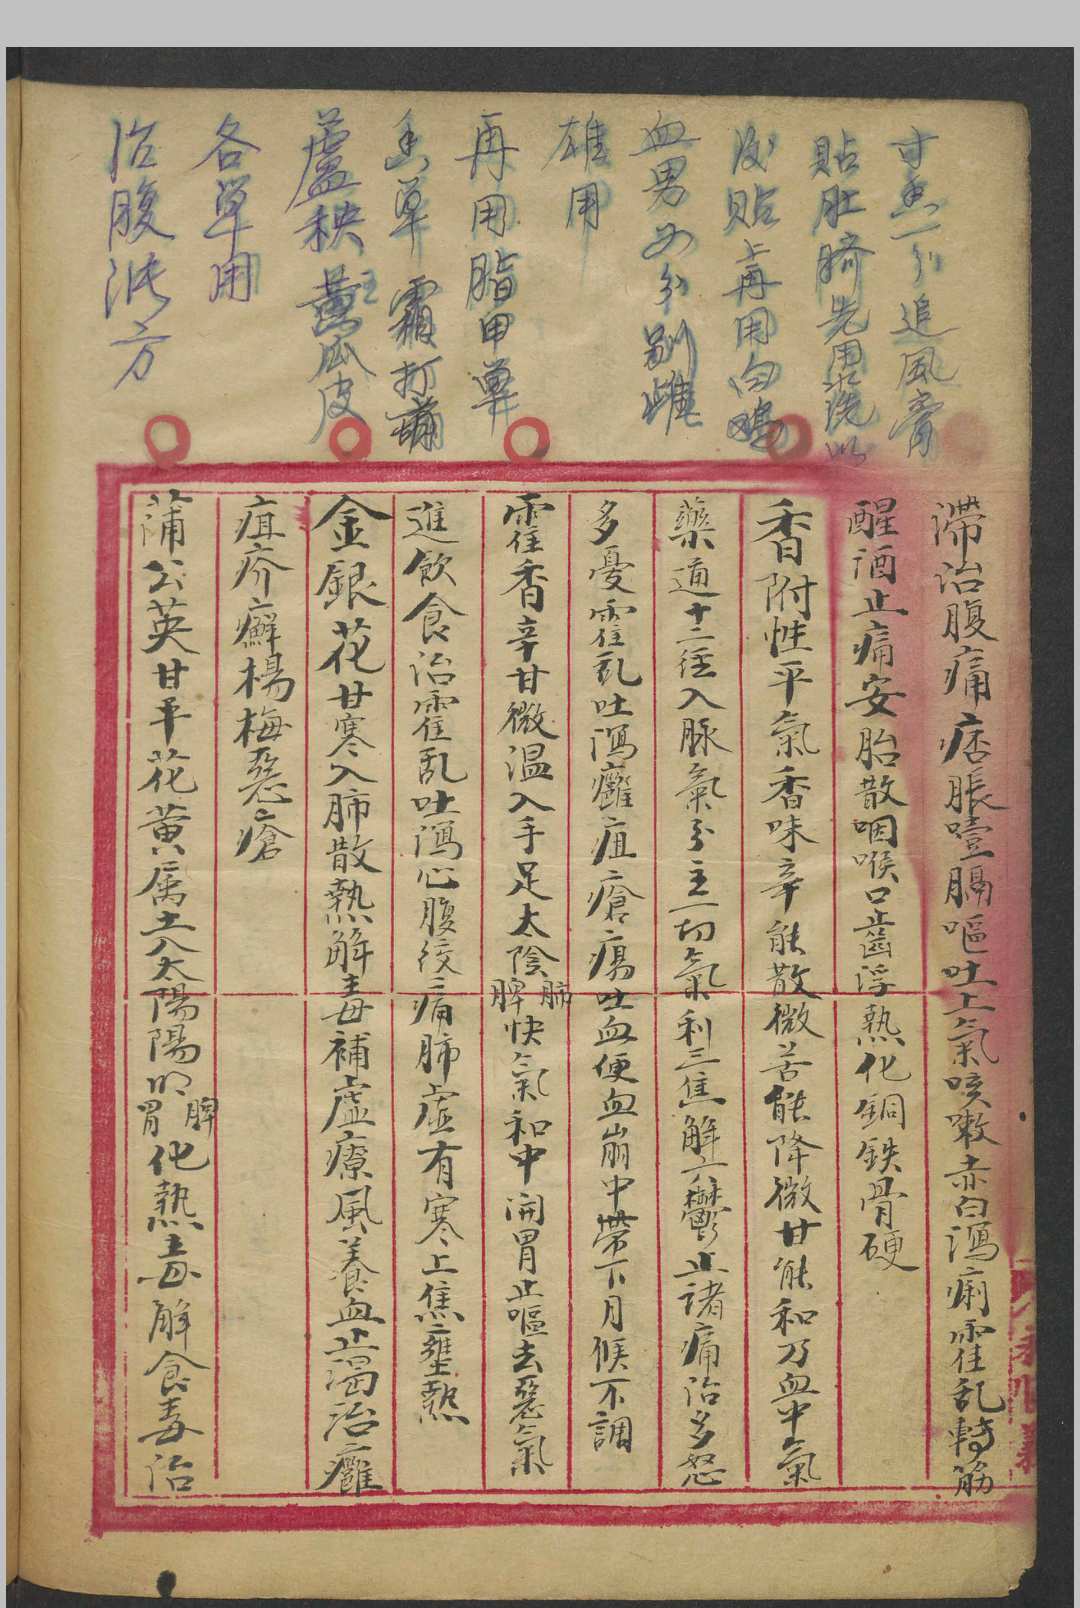 寸香一分追風膏
貼肚臍先用水洗以
後貼上再用白鴿
血男女分別雌
雄用
再用脂甲單
香草霜打
蘆秧黃瓜皮
各草用
治腹洪方
滯治腹痛痞脹噎膈嘔吐上氣咳嗽赤白瀉痢霍乱轉筋
醒酒止痛安胎散咽喉口齒浮熱化銅鉄骨硬
香附性平氣香味辛能散微苦能降微甘能和乃血中氣
藥通十二径入脉氣分主一切氣利三焦解六鬱止諸痛治多怒
多憂霍乱吐瀉癰疽瘡瘍吐血便血崩中帶下月候不調
霍香辛甘微温入手足太陰肺脾快氣和中開胃止嘔去惡氣
進飲食治霍乱吐瀉心腹绞痛肺虚有寒上焦壅熱
金銀花甘寒入肺散熱解毒補虛療風養血止渴治癰
疽疥癬楊梅惡瘡
蒲公英甘平花黄属土入太陽陽明脾胃化熱毒解食毒治